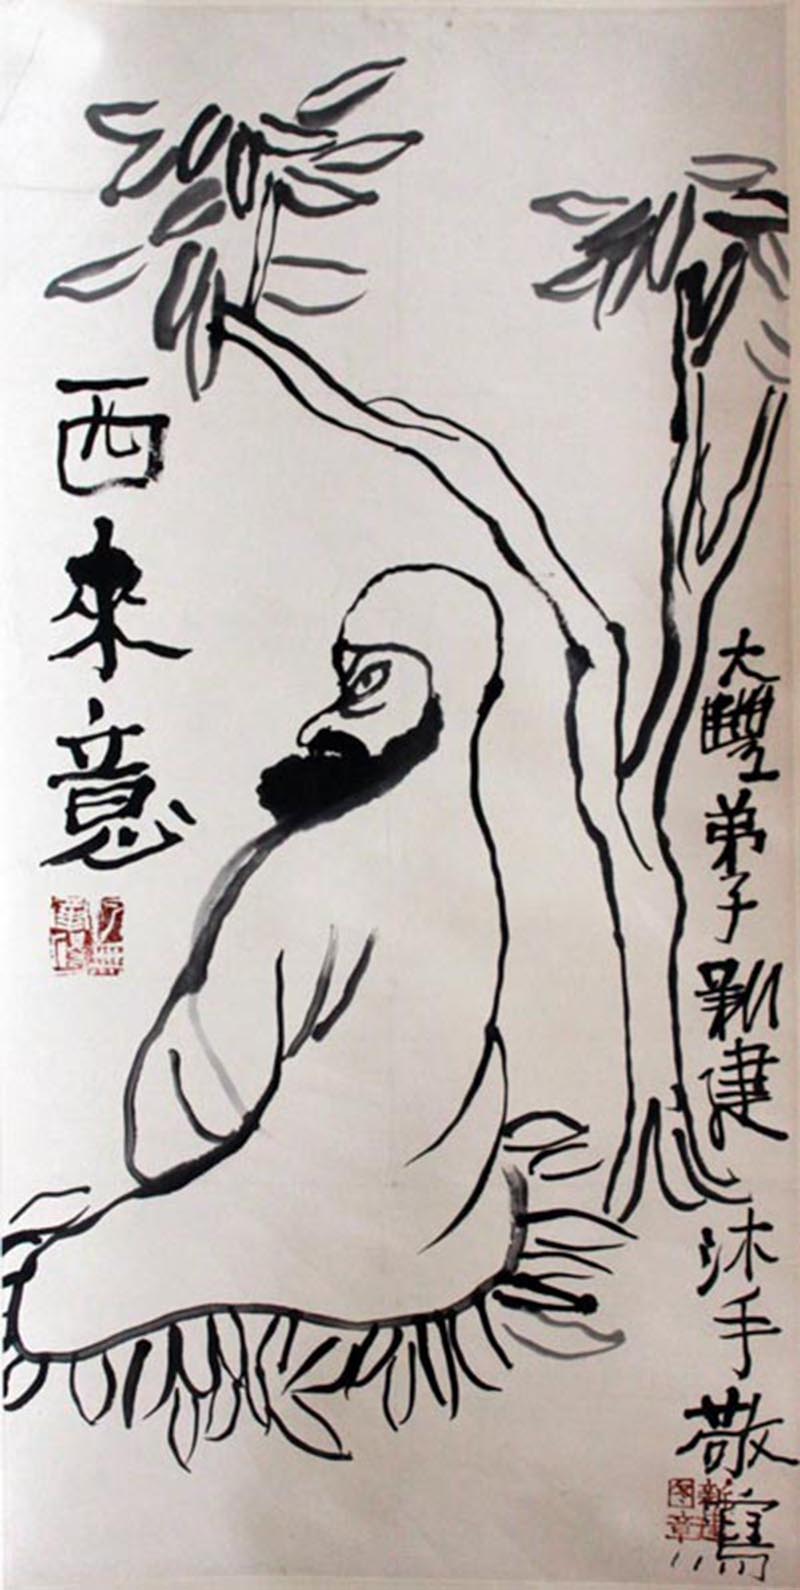 西來意
大豐弟子新建沐手敬寫
新建
图章